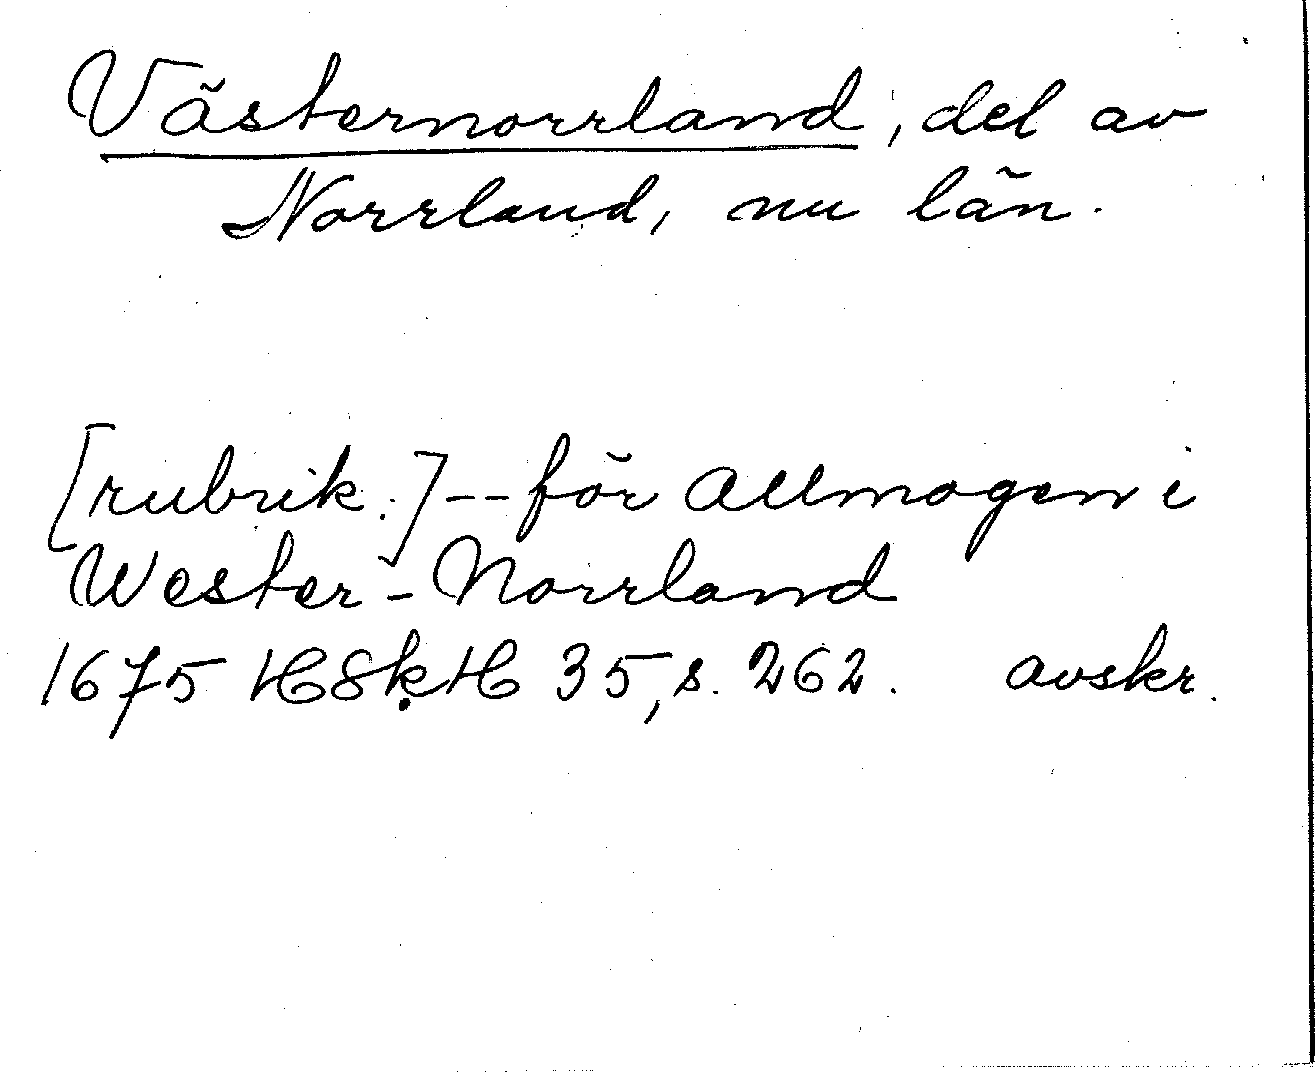 Västernorrland, del av
Norrland, nu län.
[rubrik:] -- för Allmogen i
Wester-Norrland
1675 HSkH 35, s. 262. avskr.